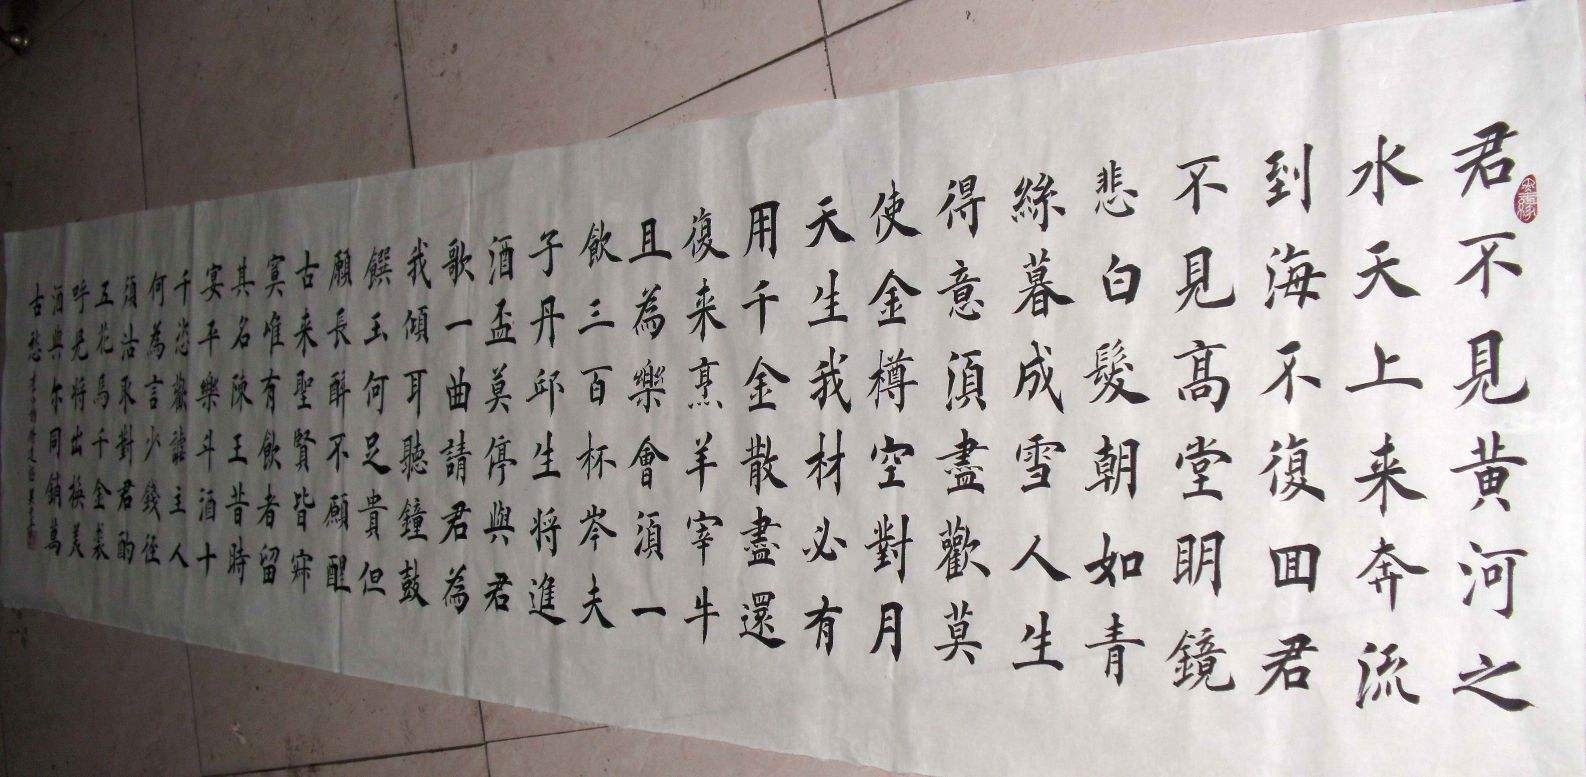 君不見黄河之
水天上来奔流
到海不復囬君
不見高堂明鏡
悲白髮朝如青
絲暮成雪人生
得意須盡歡莫
使金樽空對月
天生我材必有
用千金散盡還
復来烹羊宰牛
且為樂會須一
飲三百杯岑夫
子丹邱生将進
酒盃莫停與君
歌一曲請君為
我傾耳聽鐘鼓
饌玉何足貴但
願長醉不願醒
古来聖賢皆寂
寞唯有飲者留
其名陳王昔時
宴平樂斗酒十
千恣歡謔主人
何為言少錢径
須沽取對君酌
五花馬千金裘
呼児将出換美
酒與尔同銷萬
古愁